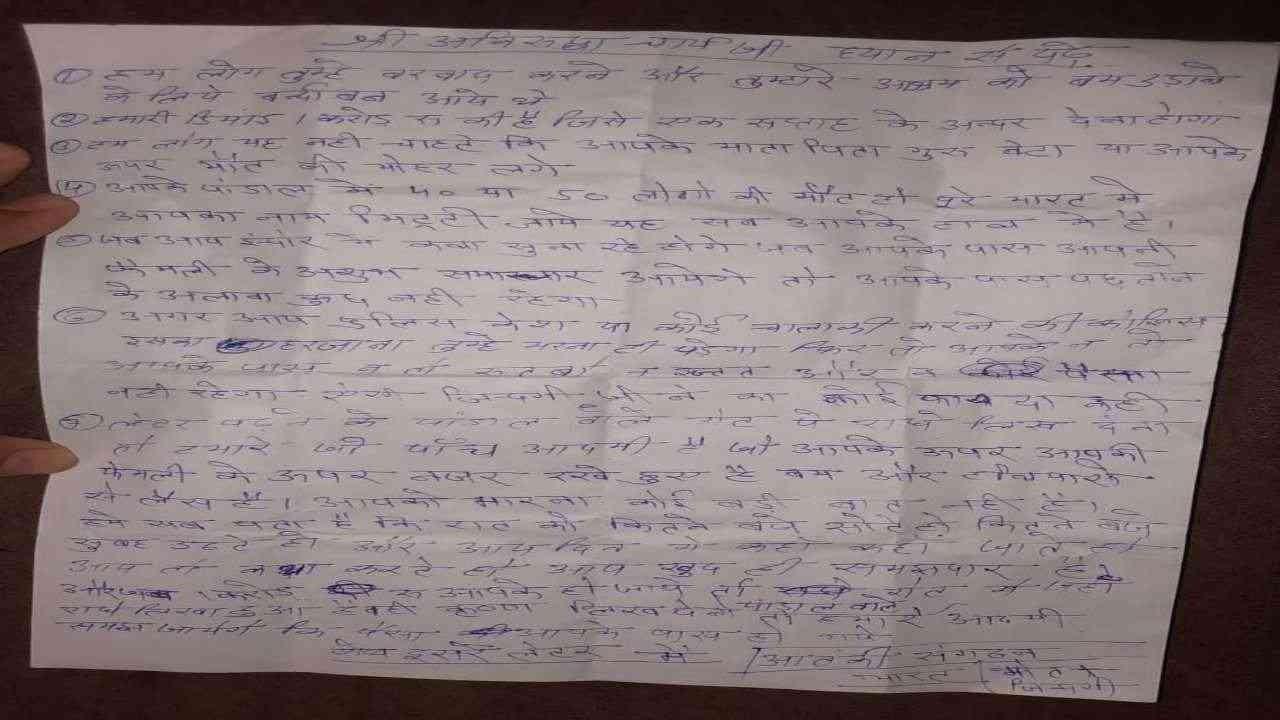 श्री अनिरुद्धाचार्य जी ध्यान से पढ़ें
① हम लोग तुम्हे बरबाद करने और तुम्हारे आश्रम को बम उडाने
के लिये वृन्दावन आये थे
② हमारी डिमांड 1 करोड रु की है जिसे एक सप्ताह के अन्दर देना होगा
③ हम लोग यह नही चाहते कि आपके माता पिता गुरु बेटा या आपके
ऊपर मौत की मोहर लगे
④ आपके पांडाल मे 40 या 50 लोगो की मौत हो पुरे भारत मे
आपका नाम मिट्टी जाये यह सब आपके हाथ मे है।
⑤ जब आप इन्दौर मे कथा सुना रहे होगे जब आपके पास आपनी
फैमली के अशुभ समाचार आयेगे तो आपके पास पछताने
के अलावा कुछ नही रहेगा
⑥ अगर आप पुलिस केश या कोई चालाकी करने की कोशिस
इसका हरजाना तुम्हे भरना ही पडेगा फिर तो आपके न तो
आपके पास न तो रुतबा न इज्जत और न पैसा
नही रहेगा जिन्दगी जीने का कोई
⑦ लेटर पढने के पांडाल वाले गेट पे राधे लिख देना
तो हमारे जो पाँच आदमी है जो आपके ऊपर आपकी
फैमली के ऊपर नजर रखे हुए है बम और
से लैस है। आपको मारना कोई बडी बात नही है।
हमे सब पता है कि रात को कितने बजे सोते हो कितने बजे
सुबह उठते हो और आप दिन मे कहां कहां जाते हो
आप तो कथा करते हो आप खुद ही समझदार है
1 करोड रु आपके हो जाये तो गेट मे जहाँ
राधे लिखा हुआ है वही कृष्ण लिख देना पांडाल वाले तो हमारे आदमी
समझ जायेगे कि पैसा आपके पास हो गये
शेष दुसरे लेटर में आतंकी संगठन
भारत